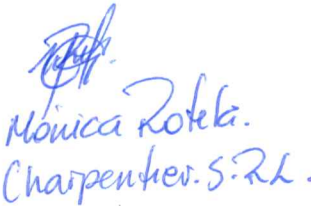 Mónica Rotela.
Charpentier. S.R.L.